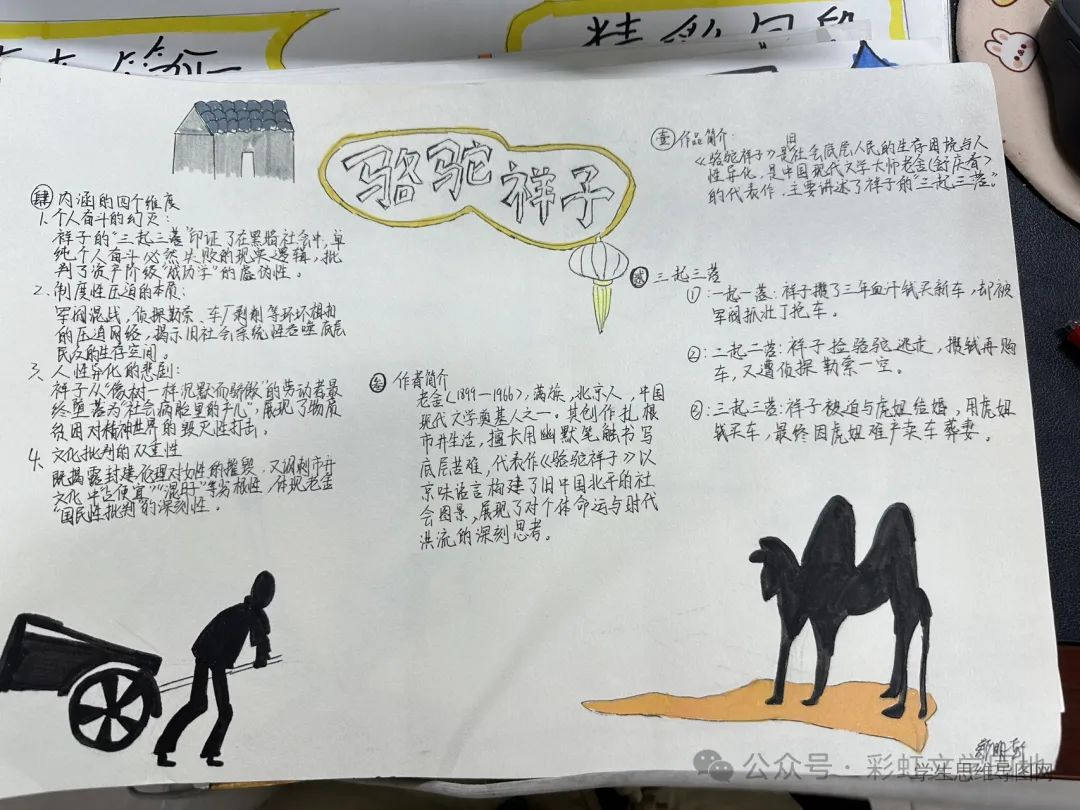 骆驼祥子
壹 作品简介:
《骆驼祥子》是旧社会底层人民的生存困境与人
性异化,是中国现代文学大师老舍(舒庆春)
的代表作,主要讲述了祥子的"三起三落"。
贰 三起三落
①:一起一落:祥子攒了三年血汗钱买新车,却被
军阀抓壮丁抢车。
②:二起二落:祥子捡骆驼逃走,攒钱再购
车,又遭侦探勒索一空。
③:三起三落:祥子被迫与虎妞结婚,用虎妞
钱买车,最终因虎妞难产卖车葬妻。
叁 作者简介
老舍(1899—1966),满族,北京人,中国
现代文学奠基人之一。其创作扎根
市井生活,擅长用幽默笔触书写
底层苦难,代表作《骆驼祥子》以
京味语言构建了旧中国北平的社
会图景,展现了对个体命运与时代
洪流的深刻思考。
肆 内涵的四个维度
1.个人奋斗的幻灭:
祥子的"三起三落"印证了在黑暗社会中,单
纯个人奋斗必然失败的现实逻辑,批
判了资产阶级"成功学"的虚伪性。
2.制度性压迫的本质:
军阀混战、侦探勒索、车厂剥削等环环相扣
的压迫网络,揭示旧社会系统性吞噬底层
民众的生存空间。
3.人性异化的悲剧:
祥子从"像树一样沉默而骄傲"的劳动者最
终堕落为"社会病胎里的产儿",展现了物质
贫困对精神世界的毁灭性打击。
4.文化批判的双重性
既揭露封建伦理对女性的摧毁,又讽刺市井
文化中"占便宜""混日子"等劣根性,体现老舍
"国民性批判"的深刻性。
公众号·彩虹文学
学生思维导图网